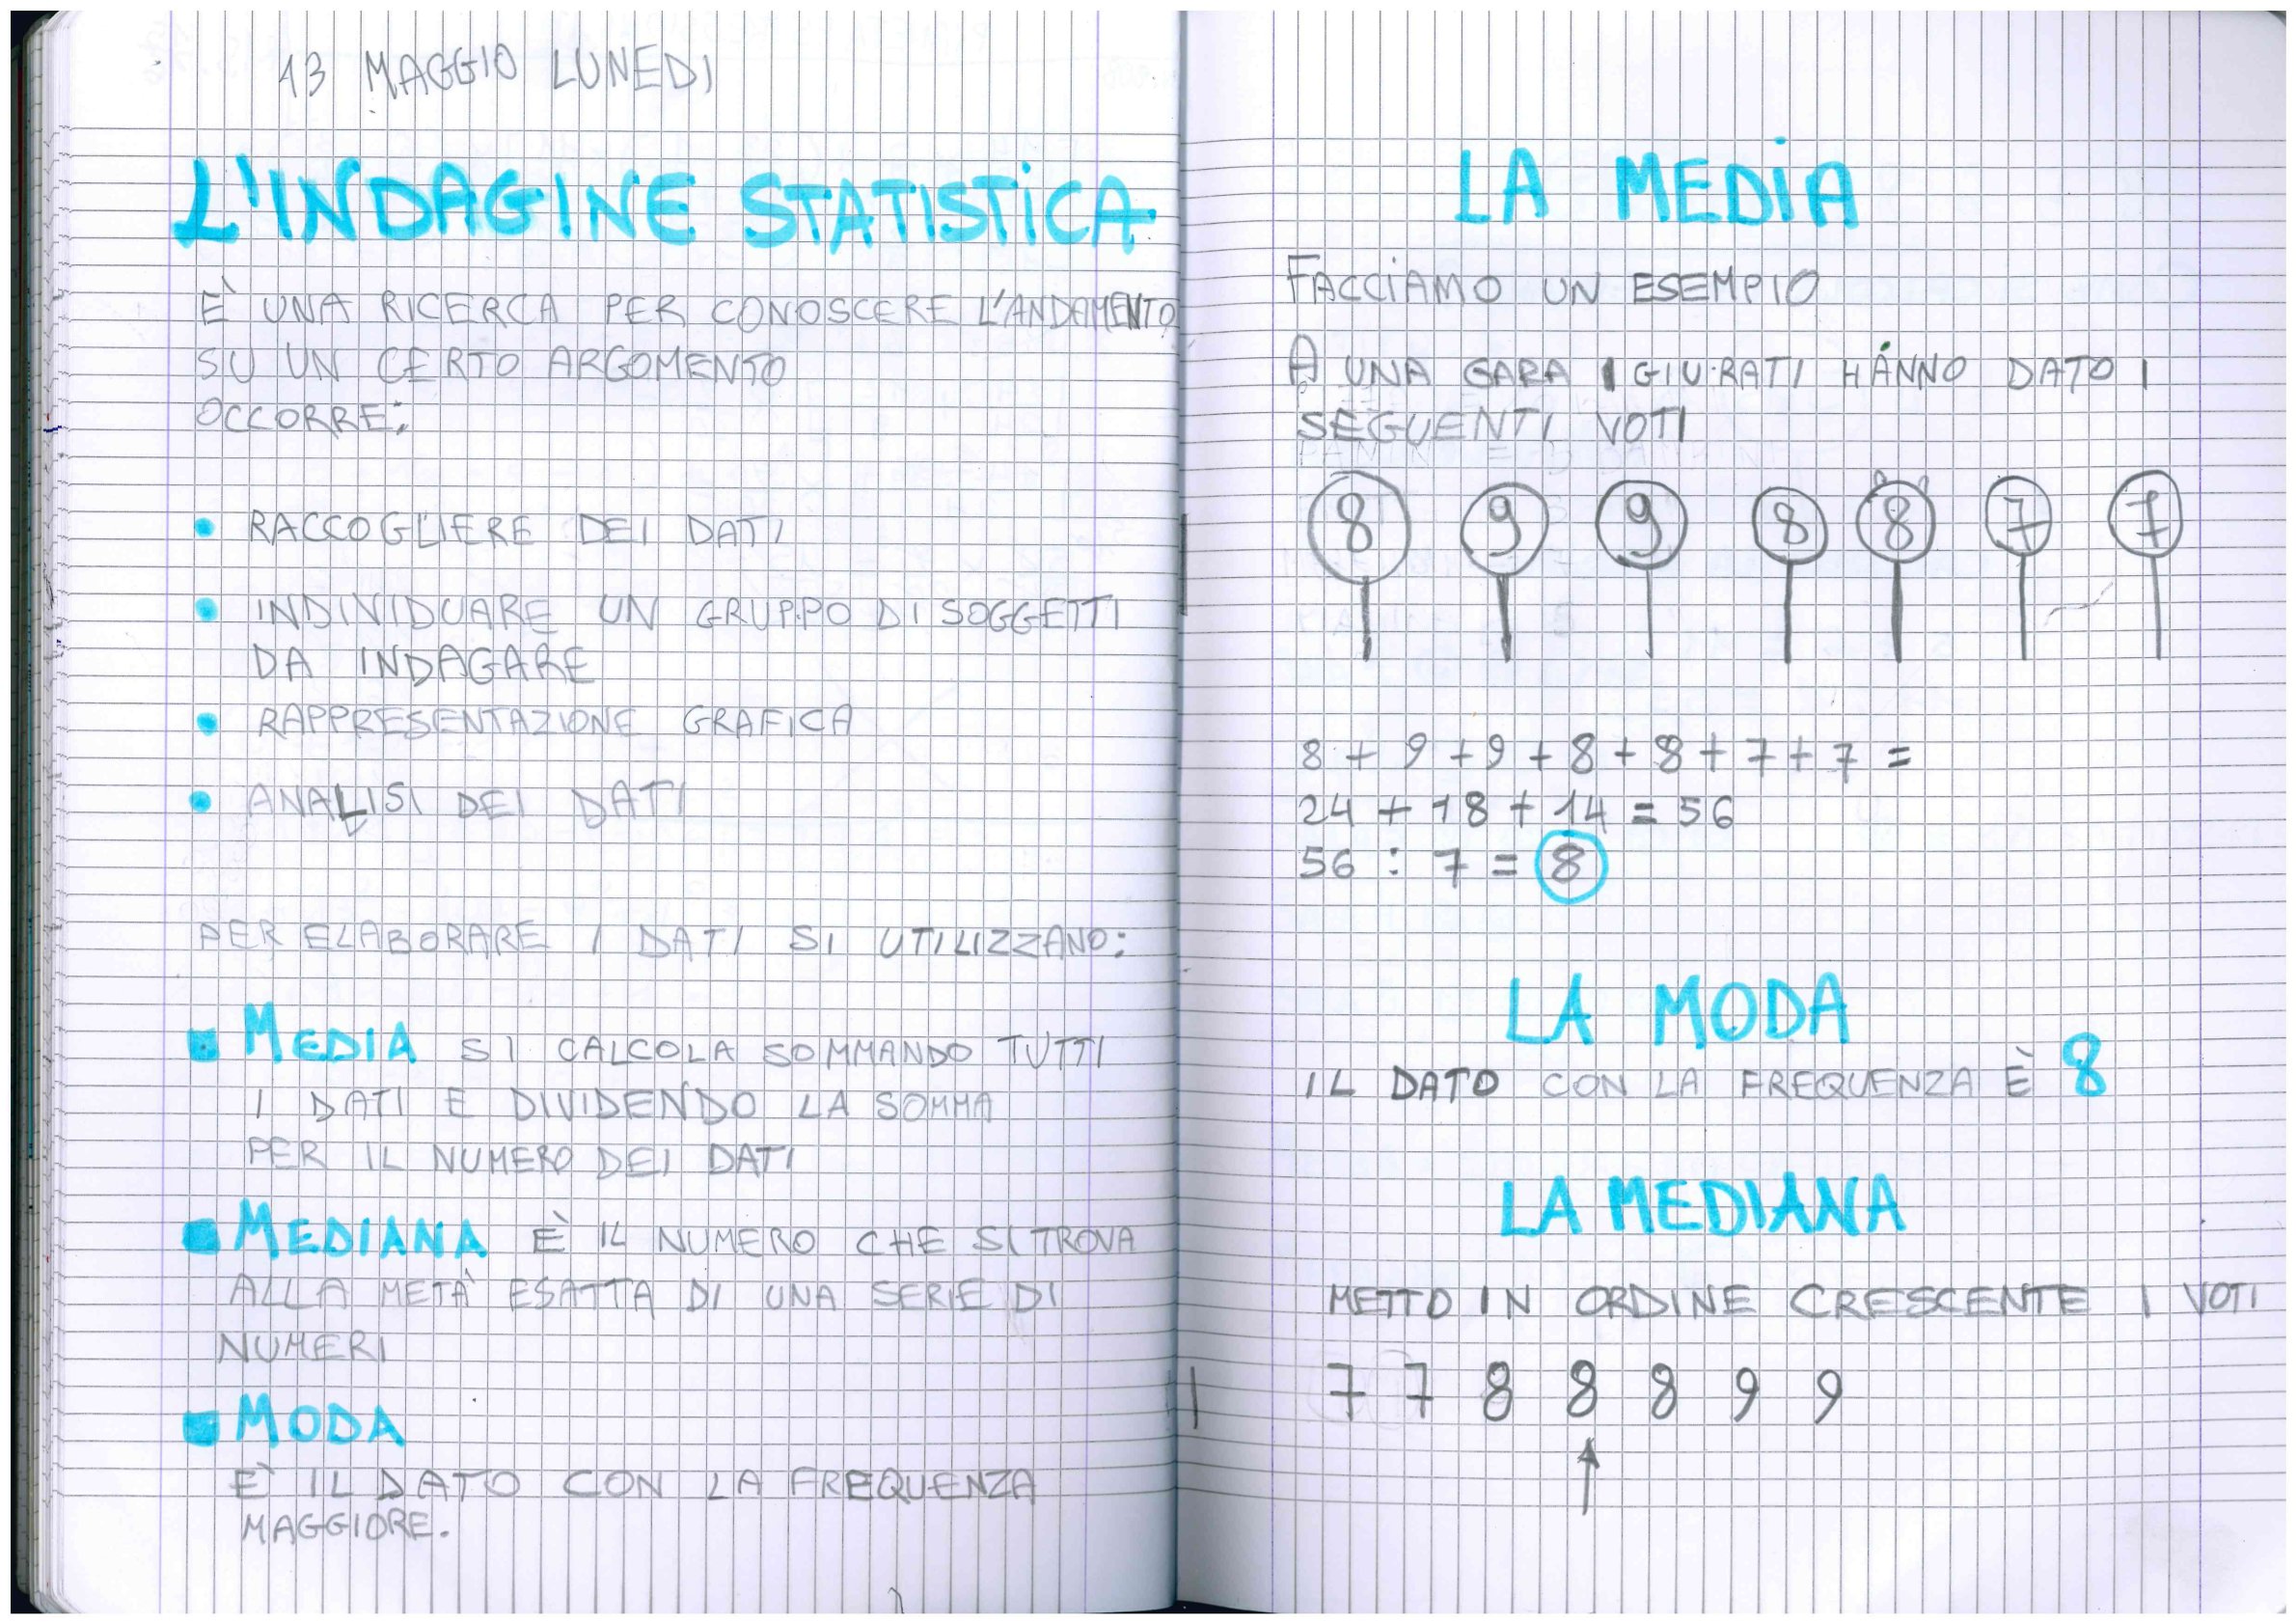 13 MAGGIO LUNEDI
L'INDAGINE STATISTICA
È UNA RICERCA PER CONOSCERE L'ANDAMENTO
SU UN CERTO ARGOMENTO
OCCORRE:
• RACCOGLIERE DEI DATI
• INDIVIDUARE UN GRUPPO DI SOGGETTI
DA INDAGARE
• RAPPRESENTAZIONE GRAFICA
• ANALISI DEI DATI
PER ELABORARE I DATI SI UTILIZZANO:
■ MEDIA SI CALCOLA SOMMANDO TUTTI
I DATI E DIVIDENDO LA SOMMA
PER IL NUMERO DEI DATI
■ MEDIANA È IL NUMERO CHE SI TROVA
ALLA METÀ ESATTA DI UNA SERIE DI
NUMERI
■ MODA
È IL DATO CON LA FREQUENZA
MAGGIORE.
LA MEDIA
FACCIAMO UN ESEMPIO
A UNA GARA I GIURATI HANNO DATO I
SEGUENTI VOTI
8 9 9 8 8 7 7
8 + 9 + 9 + 8 + 8 + 7 + 7 =
24 + 18 + 14 = 56
56 : 7 = 8
LA MODA
IL DATO CON LA FREQUENZA È 8
LA MEDIANA
METTO IN ORDINE CRESCENTE I VOTI
7 7 8 8 8 9 9